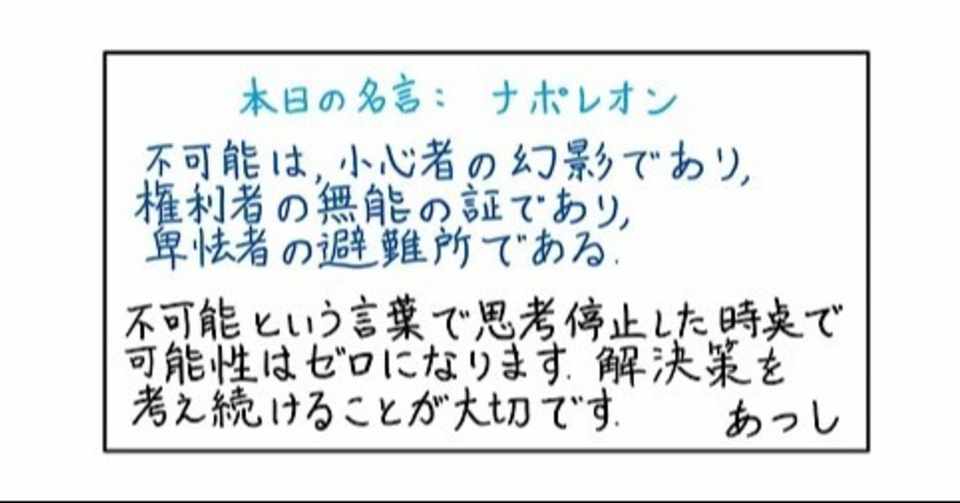 本日の名言： ナポレオン
不可能は, 小心者の幻影であり,
権利者の無能の証であり,
卑怯者の避難所である.
不可能という言葉で思考停止した時点で
可能性はゼロになります. 解決策を
考え続けることが大切です.
あっし